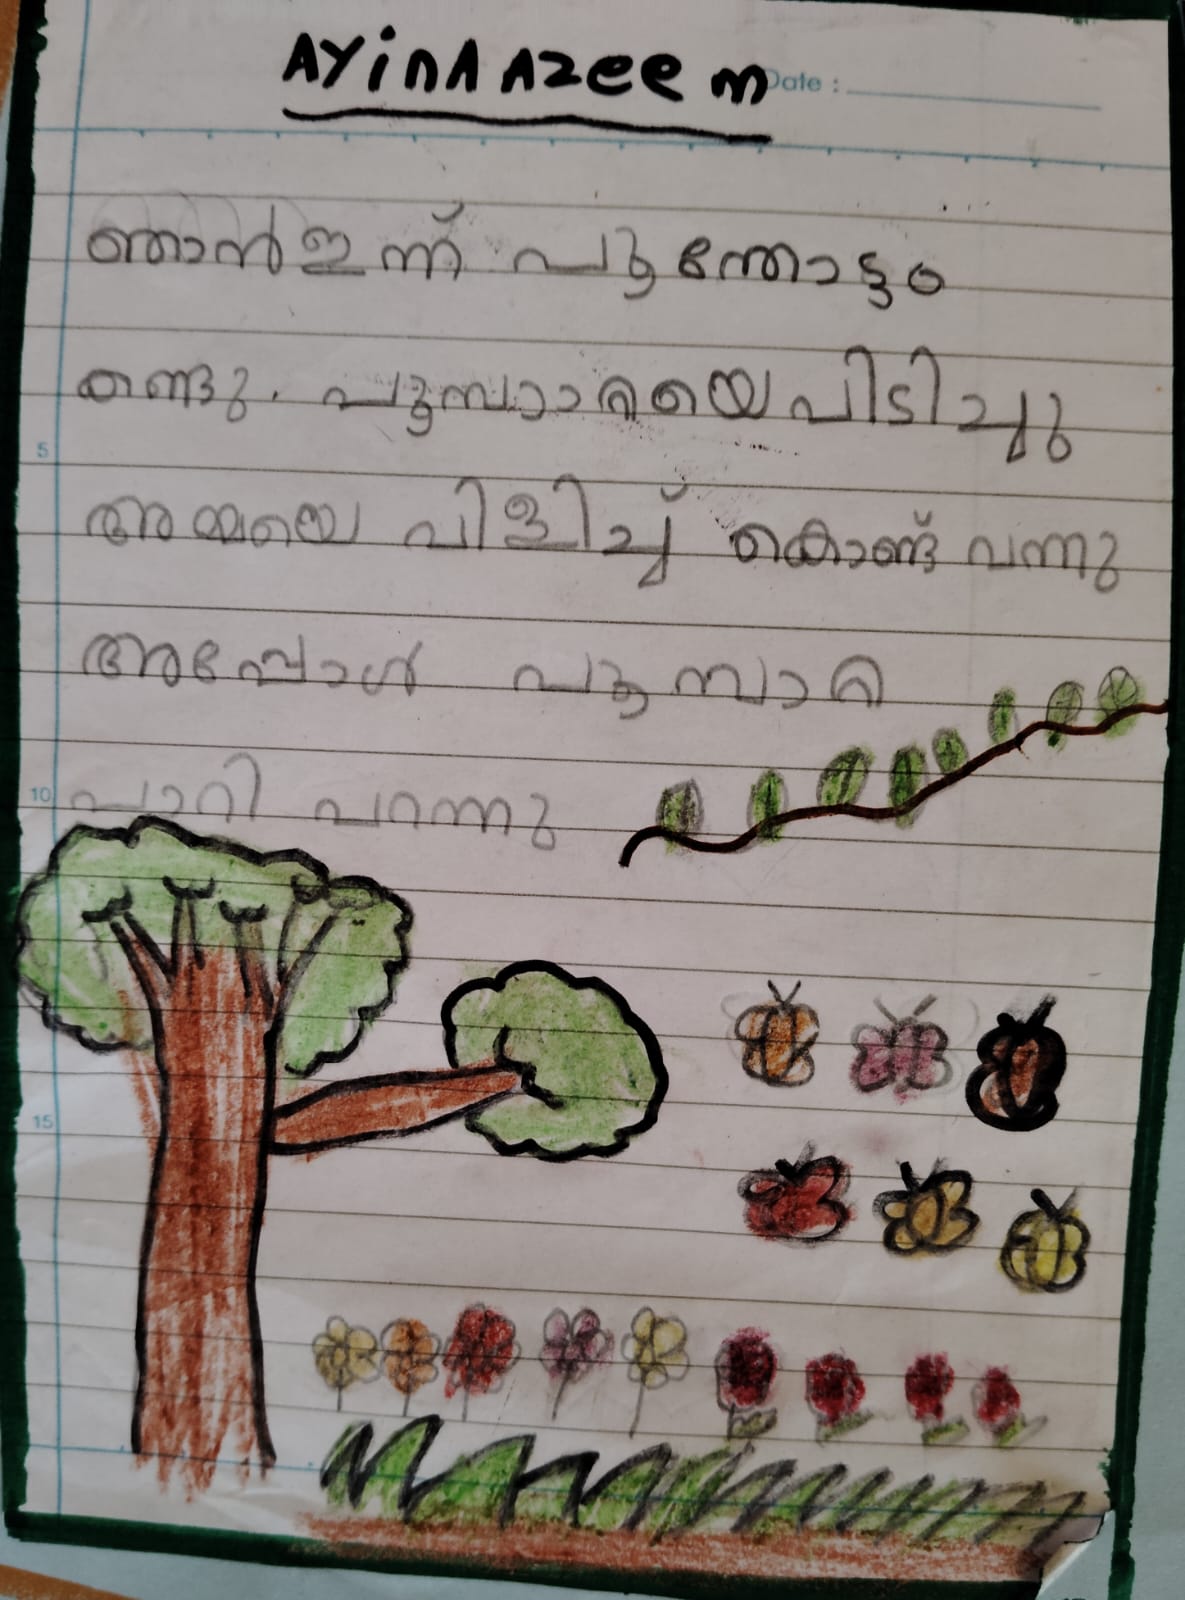 AYinA AZeem
Date :
ഞാൻ ഇന്ന് പൂന്തോട്ടം
കണ്ടു. പൂമ്പാറ്റയെ പിടിച്ചു
5
അമ്മയെ വിളിച്ച് കൊണ്ട് വന്നു
അപ്പോൾ പൂമ്പാറ്റ
10
പാറി പറന്നു
15